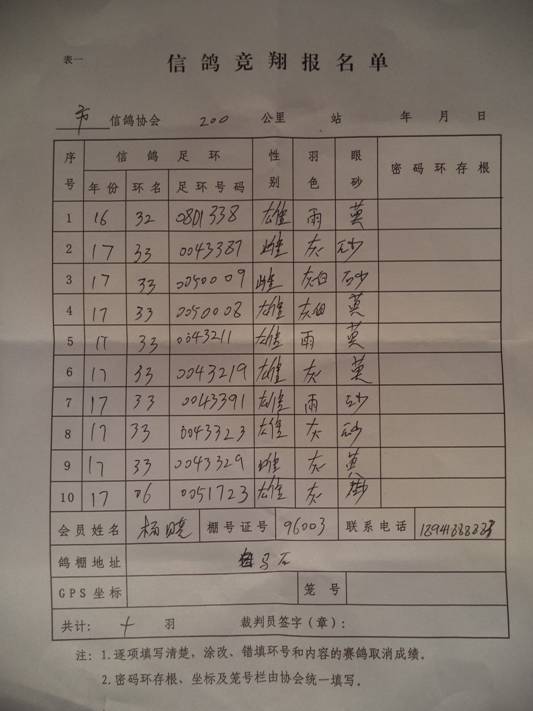 表一
信鸽竞翔报名单
市 信鸽协会 200 公里 站 年 月 日
序号 信鸽足环 性别 羽色 眼砂 密码环存根
年份 环名 足环号码
1 16 32 0801338 雄 雨 黄
2 17 33 0043387 雌 灰 砂
3 17 33 0050009 雌 灰白 砂
4 17 33 0050008 雄 灰白 黄
5 17 33 0043211 雄 雨 黄
6 17 33 0043219 雄 灰 黄
7 17 33 0043391 雄 雨 砂
8 17 33 0043323 雄 灰 砂
9 17 33 0043329 雌 灰 黄
10 17 06 0051723 雄 灰
会员姓名 杨晓 棚号证号 96003 联系电话
鸽棚地址 马石
GPS坐标 笼号
共计: 十 羽 裁判员签字(章):
注: 1.逐项填写清楚,涂改、错填环号和内容的赛鸽取消成绩。
2.密码环存根、坐标及笼号栏由协会统一填写。